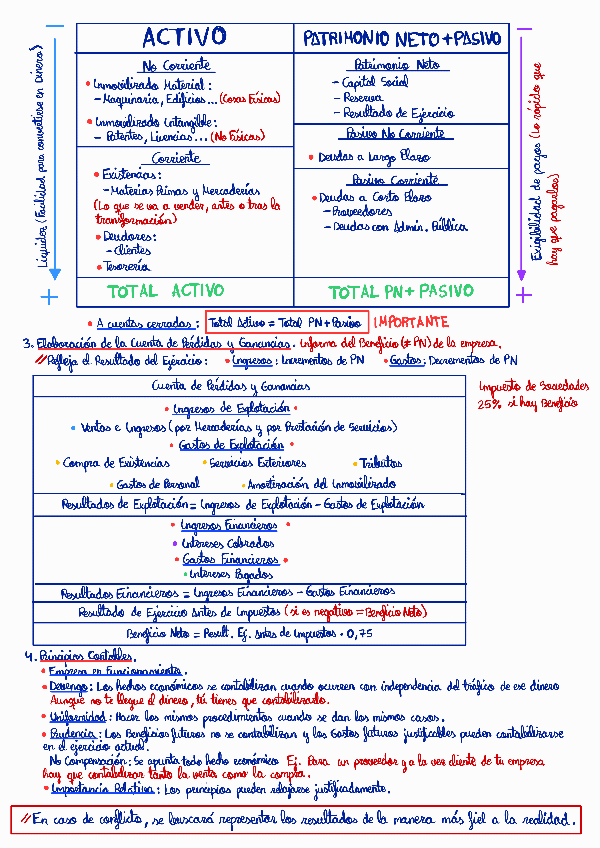 ACTIVO
No Corriente
• Inmovilizado Material:
- Maquinaria, Edificios... (Cosas Físicas)
• Inmovilizado Intangible:
- Patentes, Licencias... (No Físicas)
Corriente
• Existencias:
- Materias Primas y Mercaderías
(Lo que se va a vender, antes o tras la
transformación)
• Deudores:
- Clientes
• Tesorería
TOTAL ACTIVO
PATRIMONIO NETO + PASIVO
Patrimonio Neto
- Capital Social
- Reserva
- Resultado de Ejercicio
Pasivo No Corriente
• Deudas a Largo Plazo
Pasivo Corriente
• Deudas a Corto Plazo
- Proveedores
- Deudas con Admin. Pública
TOTAL PN + PASIVO
Liquidez (Facilidad para convertirse en Dinero)
Exigibilidad de pagos (Lo rápido que
hay que pagarlos)
• A cuentas cerradas: Total Activo = Total PN + Pasivo IMPORTANTE
3. Elaboración de la Cuenta de Pérdidas y Ganancias. Informa del Beneficio (≠ PN) de la empresa.
// Refleja el Resultado del Ejercicio: • Ingresos: Incrementos de PN • Gastos: Decrementos de PN
Cuenta de Pérdidas y Ganancias
• Ingresos de Explotación •
• Ventas e Ingresos (por Mercaderías y por Prestación de Servicios)
• Gastos de Explotación •
• Compra de Existencias • Servicios Exteriores • Tributos
• Gastos de Personal • Amortización del Inmovilizado
Resultados de Explotación = Ingresos de Explotación - Gastos de Explotación
• Ingresos Financieros •
• Intereses Cobrados
• Gastos Financieros •
• Intereses Pagados
Resultados Financieros = Ingresos Financieros - Gastos Financieros
Resultado de Ejercicio Antes de Impuestos (si es negativo = Beneficio Neto)
Beneficio Neto = Result. Ej. Antes de Impuestos · 0,75
Impuesto de Sociedades
25% si hay Beneficio
4. Principios Contables.
• Empresa en Funcionamiento.
• Devengo: Los hechos económicos se contabilizan cuando ocurren con independencia del tráfico de ese dinero
Aunque no te llegue el dinero, tú tienes que contabilizarlo.
• Uniformidad: Hacer los mismos procedimientos cuando se dan los mismos casos.
• Prudencia: Los Beneficios futuros no se contabilizan y los Gastos futuros justificables pueden contabilizarse
en el ejercicio actual.
No Compensación: Se apunta todo hecho económico Ej. Para un proveedor y a la vez cliente de tu empresa
hay que contabilizar tanto la venta como la compra.
• Importancia Relativa: Los principios pueden relajarse justificadamente.
// En caso de conflicto, se buscará representar los resultados de la manera más fiel a la realidad.